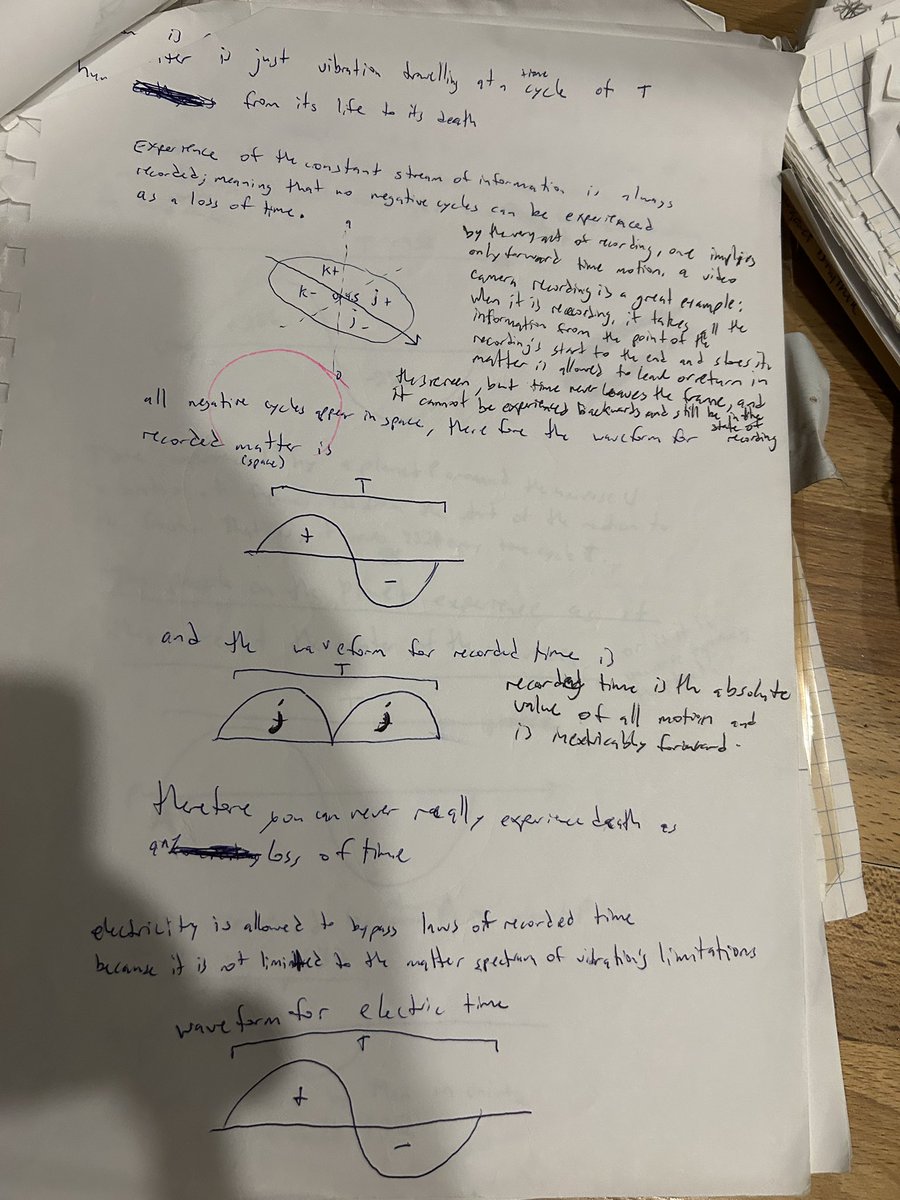 is
is just vibration travelling at a time cycle of T
from its life to its death
Experience of the constant stream of information is always
recorded; meaning that no negative cycles can be experienced
as a loss of time.
by the very act of recording, one implies
only forward time motion. a video
camera recording is a great example:
when it is recording, it takes all the
information from the point of the
recording's start to the end and stores it.
matter is allowed to leave or return in
the screen, but time never leaves the frame, and
it cannot be experienced backwards and still be in the
state of
recording
k+
k- j+
j-
all negative cycles appear in space, therefore the waveform for
recorded matter is
(space)
T
+
-
and the waveform for recorded time is
T
j j
recorded time is the absolute
value of all motion and
is inextricably forward.
therefore you can never really experience death as
any loss of time
electricity is allowed to bypass laws of recorded time
because it is not limited to the matter spectrum of vibration's limitations
waveform for electric time
T
+
-